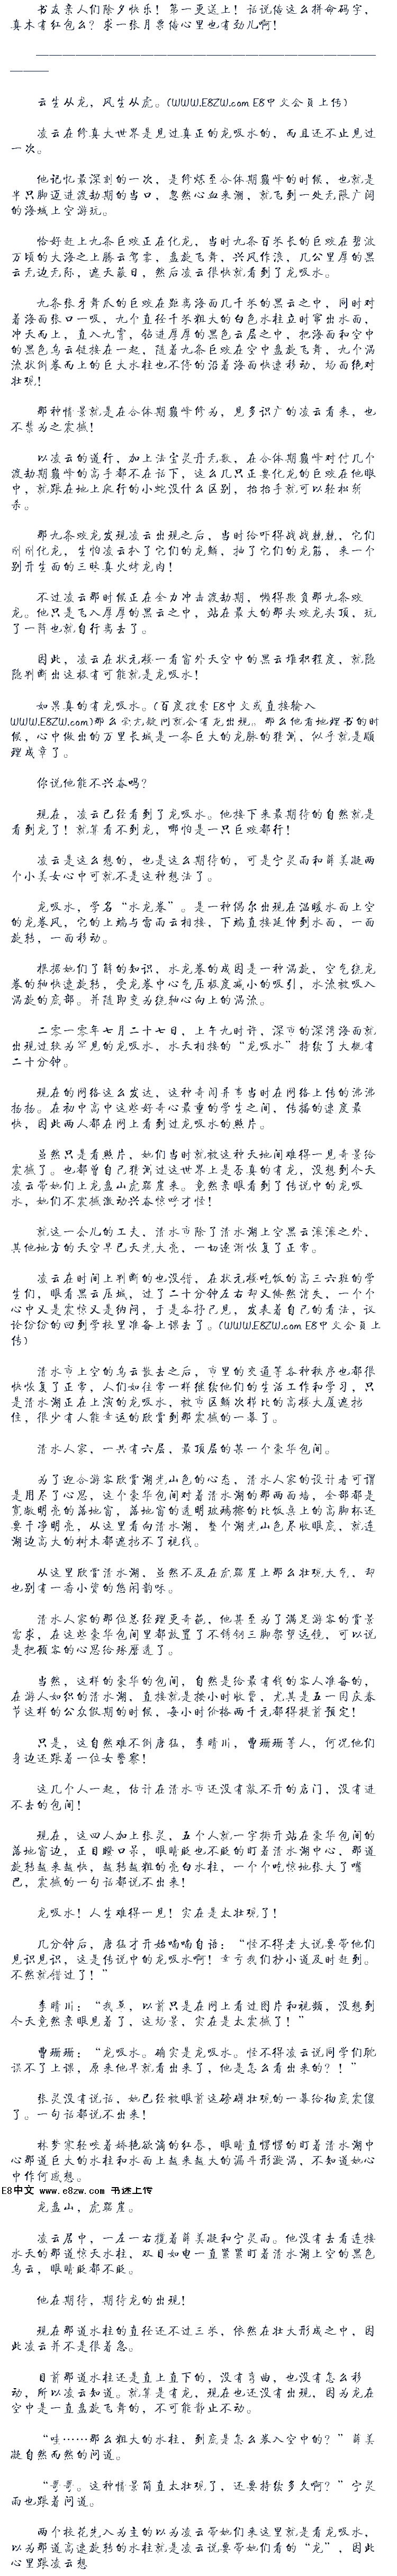 书友亲人们除夕快乐！第一更送上！话说传这么拼命码字，
真木有红包么？求一张月票传心里也有劲儿啊！
————————————————————————————
———
云生从龙，风生从虎。(WWW.E8ZW.com E8中文会员上传)
凌云在修真大世界是见过真正的龙吸水的，而且还不止见过
一次。
他记忆最深刻的一次，是修炼至合体期巅峰的时候，也就是
半只脚迈进渡劫期的当口，忽然心血来潮，就飞到一处无限广阔
的海域上空游玩。
恰好赶上九条巨蛟正在化龙，当时九条百米长的巨蛟在碧波
万顷的大海之上腾云驾雾，盘旋飞舞，兴风作浪，几公里厚的黑
云无边无际，遮天蔽日，然后凌云很快就看到了龙吸水。
九条张牙舞爪的巨蛟在距离海面几千米的黑云之中，同时对
着海面张口一吸，九个直径千米粗大的白色水柱立时窜出水面，
冲天而上，直入九霄，钻进厚厚的黑色云层之中，把海面和空中
的黑色乌云链接在一起，随着九条巨蛟在空中盘旋飞舞，九个涡
流状倒卷而上的巨大水柱也不停的沿着海面快速移动，场面绝对
壮观！
那种情景就是在合体期巅峰修为，见多识广的凌云看来，也
不禁为之震撼！
以凌云的道行，加上法宝灵丹无数，在合体期巅峰对付几个
渡劫期巅峰的高手都不在话下，这么几只正要化龙的巨蛟在他眼
中，就跟在地上爬行的小蛇没什么区别，抬抬手就可以轻松斩
杀。
那九条蛟龙发现凌云出现之后，当时给吓得战战兢兢，它们
刚刚化龙，生怕凌云扒了它们的龙鳞，抽了它们的龙筋，来一个
别开生面的三昧真火烤龙肉！
不过凌云那时候正在全力冲击渡劫期，懒得欺负那九条蛟
龙。他只是飞入厚厚的黑云之中，站在最大的那头蛟龙头顶，玩
了一阵也就自行离去了。
因此，凌云在状元楼一看窗外天空中的黑云堆积程度，就隐
隐判断出这极有可能就是龙吸水！
如果真的有龙吸水。(百度搜索 E8中文或直接输入
WWW.E8ZW.com)那么毫无疑问就会有龙出现。那么他看地理书的时
候，心中做出的万里长城是一条巨大的龙脉的猜测，似乎就是顺
理成章了。
你说他能不兴奋吗？
现在，凌云已经看到了龙吸水。他接下来最期待的自然就是
看到龙了！就算看不到龙，哪怕是一只巨蛟都行！
凌云是这么想的，也是这么期待的，可是宁灵雨和薛美凝两
个小美女心中可就不是这种想法了。
龙吸水，学名“水龙卷”。是一种偶尔出现在温暖水面上空
的龙卷风，它的上端与雷雨云相接，下端直接延伸到水面，一面
旋转，一面移动。
根据她们了解的知识，水龙卷的成因是一种涡旋，空气绕龙
卷的轴快速旋转，受龙卷中心气压极度减小的吸引，水流被吸入
涡旋的底部。并随即变为绕轴心向上的涡流。
二零一零年七月二十七日，上午九时许，深市的深湾海面就
出现过较为罕见的龙吸水，水天相接的“龙吸水”持续了大概有
二十分钟。
现在的网络这么发达，这种奇闻异事当时在网络上传的沸沸
扬扬。在初中高中这些好奇心最重的学生之间，传播的速度最
快，因此两人都在网上看到过龙吸水的照片。
虽然只是看照片，她们当时就被这种天地间难得一见奇景给
震撼了。也都曾自己猜测过这世界上是否真的有龙，没想到今天
凌云带她们上龙盘山虎踞崖来。竟然亲眼看到了传说中的龙吸
水，她们不震撼激动兴奋惊呼才怪！
就这一会儿的工夫，清水市除了清水湖上空黑云滚滚之外，
其他地方的天空早已天光大亮，一切逐渐恢复了正常。
凌云在时间上判断的也没错，在状元楼吃饭的高三六班的学
生们，眼看黑云压城，过了二十分钟左右却又倏然消失，一个个
心中又是震惊又是纳闷，于是各抒己见，发表着自己的看法，议
论纷纷的回到学校里准备上课去了。(WWW.E8ZW.com E8中文会员上
传)
清水市上空的乌云散去之后，市里的交通等各种秩序也都很
快恢复了正常，人们如往常一样继续他们的生活工作和学习，只
是清水湖正在上演的龙吸水，被市区鳞次栉比的高楼大厦遮挡
住，很少有人能幸运的欣赏到那震撼的一幕了。
清水人家，一共有六层，最顶层的某一个豪华包间。
为了迎合游客欣赏湖光山色的心态，清水人家的设计者可谓
是用尽了心思，这个豪华包间对着清水湖的那两面墙，全部都是
宽敞明亮的落地窗，落地窗的透明玻璃擦的比饭桌上的高脚杯还
要干净明亮，从这里看向清水湖，整个湖光山色尽收眼底，就连
湖边高大的树木都遮挡不了视线。
从这里欣赏清水湖，虽然不及在虎踞崖上那么壮观大气，却
也别有一番小资的悠闲韵味。
清水人家的那位总经理更奇葩，他甚至为了满足游客的赏景
需求，在这些豪华包间里都放置了不锈钢三脚架望远镜，可以说
是把顾客的心思给琢磨透了。
当然，这样的豪华的包间，自然是给最有钱的客人准备的，
在游人如织的清水湖，直接就是按小时收费，尤其是五一国庆春
节这样的公众假期的时候，每小时价格两千元都得提前预定！
只是，这自然难不倒唐猛，李晴川，曹珊珊等人，何况他们
身边还跟着一位女警察！
这几个人一起，估计在清水市还没有敲不开的店门，没有进
不去的包间！
现在，这四人加上张灵，五个人就一字排开站在豪华包间的
落地窗边，正目瞪口呆，眼睛眨也不眨的盯着清水湖中心，那道
旋转越来越快，越转越粗的亮白水柱，一个个吃惊地张大了嘴
巴，震撼的一句话都说不出来！
龙吸水！人生难得一见！实在是太壮观了！
几分钟后，唐猛才开始喃喃自语：“怪不得老大说要带他们
见识见识，这是传说中的龙吸水啊！幸亏我们抄小道及时赶到。
不然就错过了！”
李晴川：“我草，以前只是在网上看过图片和视频，没想到
今天竟然亲眼见着了，这场景，实在是太震撼了！”
曹珊珊：“龙吸水。确实是龙吸水。怪不得凌云说同学们耽
误不了上课，原来他早就看出来了，他是怎么看出来的？！”
张灵没有说话，她已经被眼前这磅礴壮观的一幕给彻底震傻
了。一句话都说不出来！
林梦寒轻咬着娇艳欲滴的红唇，眼睛直愣愣的盯着清水湖中
心那道巨大的水柱和水面上越来越大的漏斗形漩涡，不知道她心
中作何感想。
E8中文 www.e8zw.com 书迷上传
龙盘山，虎踞崖。
凌云居中，一左一右搂着薛美凝和宁灵雨。他没有去看连接
水天的那道惊天水柱，双目如电一直紧紧盯着清水湖上空的黑色
乌云，眼睛眨都不眨。
他在期待，期待龙的出现！
现在那道水柱的直径还不过三米，依然在壮大形成之中，因
此凌云并不是很着急。
目前那道水柱还是直上直下的，没有弯曲，也没有怎么移
动，所以凌云知道。就算是有龙，现在也还没有出现，因为龙在
空中是一直盘旋飞舞的，不可能静止不动。
“哇……那么粗大的水柱，到底是怎么卷入空中的？”薛美
凝自然而然的问道。
“哥哥。这种情景简直太壮观了，还要持续多久啊？”宁灵
雨也跟着问道。
两个校花先入为主的以为凌云带她们来这里就是看龙吸水，
以为那道高速旋转的水柱就是凌云说要带她们看的“龙”，因此
心里跟凌云想